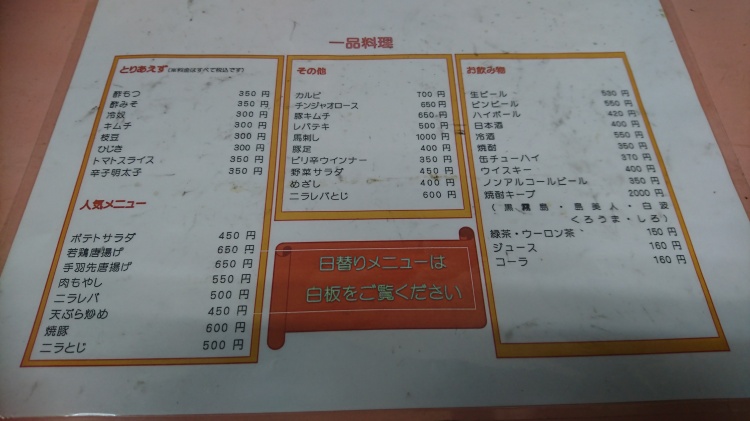 一品料理
とりあえず(※料金はすべて税込です)
酢もつ 350 円
酢みそ 350 円
冷奴 300 円
キムチ 300 円
枝豆 300 円
ひじき 300 円
トマトスライス 350 円
辛子明太子 350 円
人気メニュー
ポテトサラダ 450 円
若鶏唐揚げ 650 円
手羽先唐揚げ 650 円
肉もやし 550 円
ニラレバ 500 円
天ぷら炒め 450 円
焼豚 600 円
ニラとじ 500 円
その他
カルビ 700 円
チンジャオロース 650円
豚キムチ 650 円
レバテキ 500 円
馬刺し 1000 円
豚足 400 円
ピリ辛ウインナー 350 円
野菜サラダ 450 円
めざし 400 円
ニラレバとじ 600 円
日替りメニューは
白板をご覧ください
お飲み物
生ビール 530 円
ビンビール 550 円
ハイボール 420 円
日本酒 400 円
冷酒 550 円
焼酎 350 円
缶チューハイ 370 円
ウイスキー 400 円
ノンアルコールビール 350 円
焼酎キープ 2000 円
(黒霧島・島美人・白波
くろうま・しろ)
緑茶・ウーロン茶 150 円
ジュース 160 円
コーラ 160 円